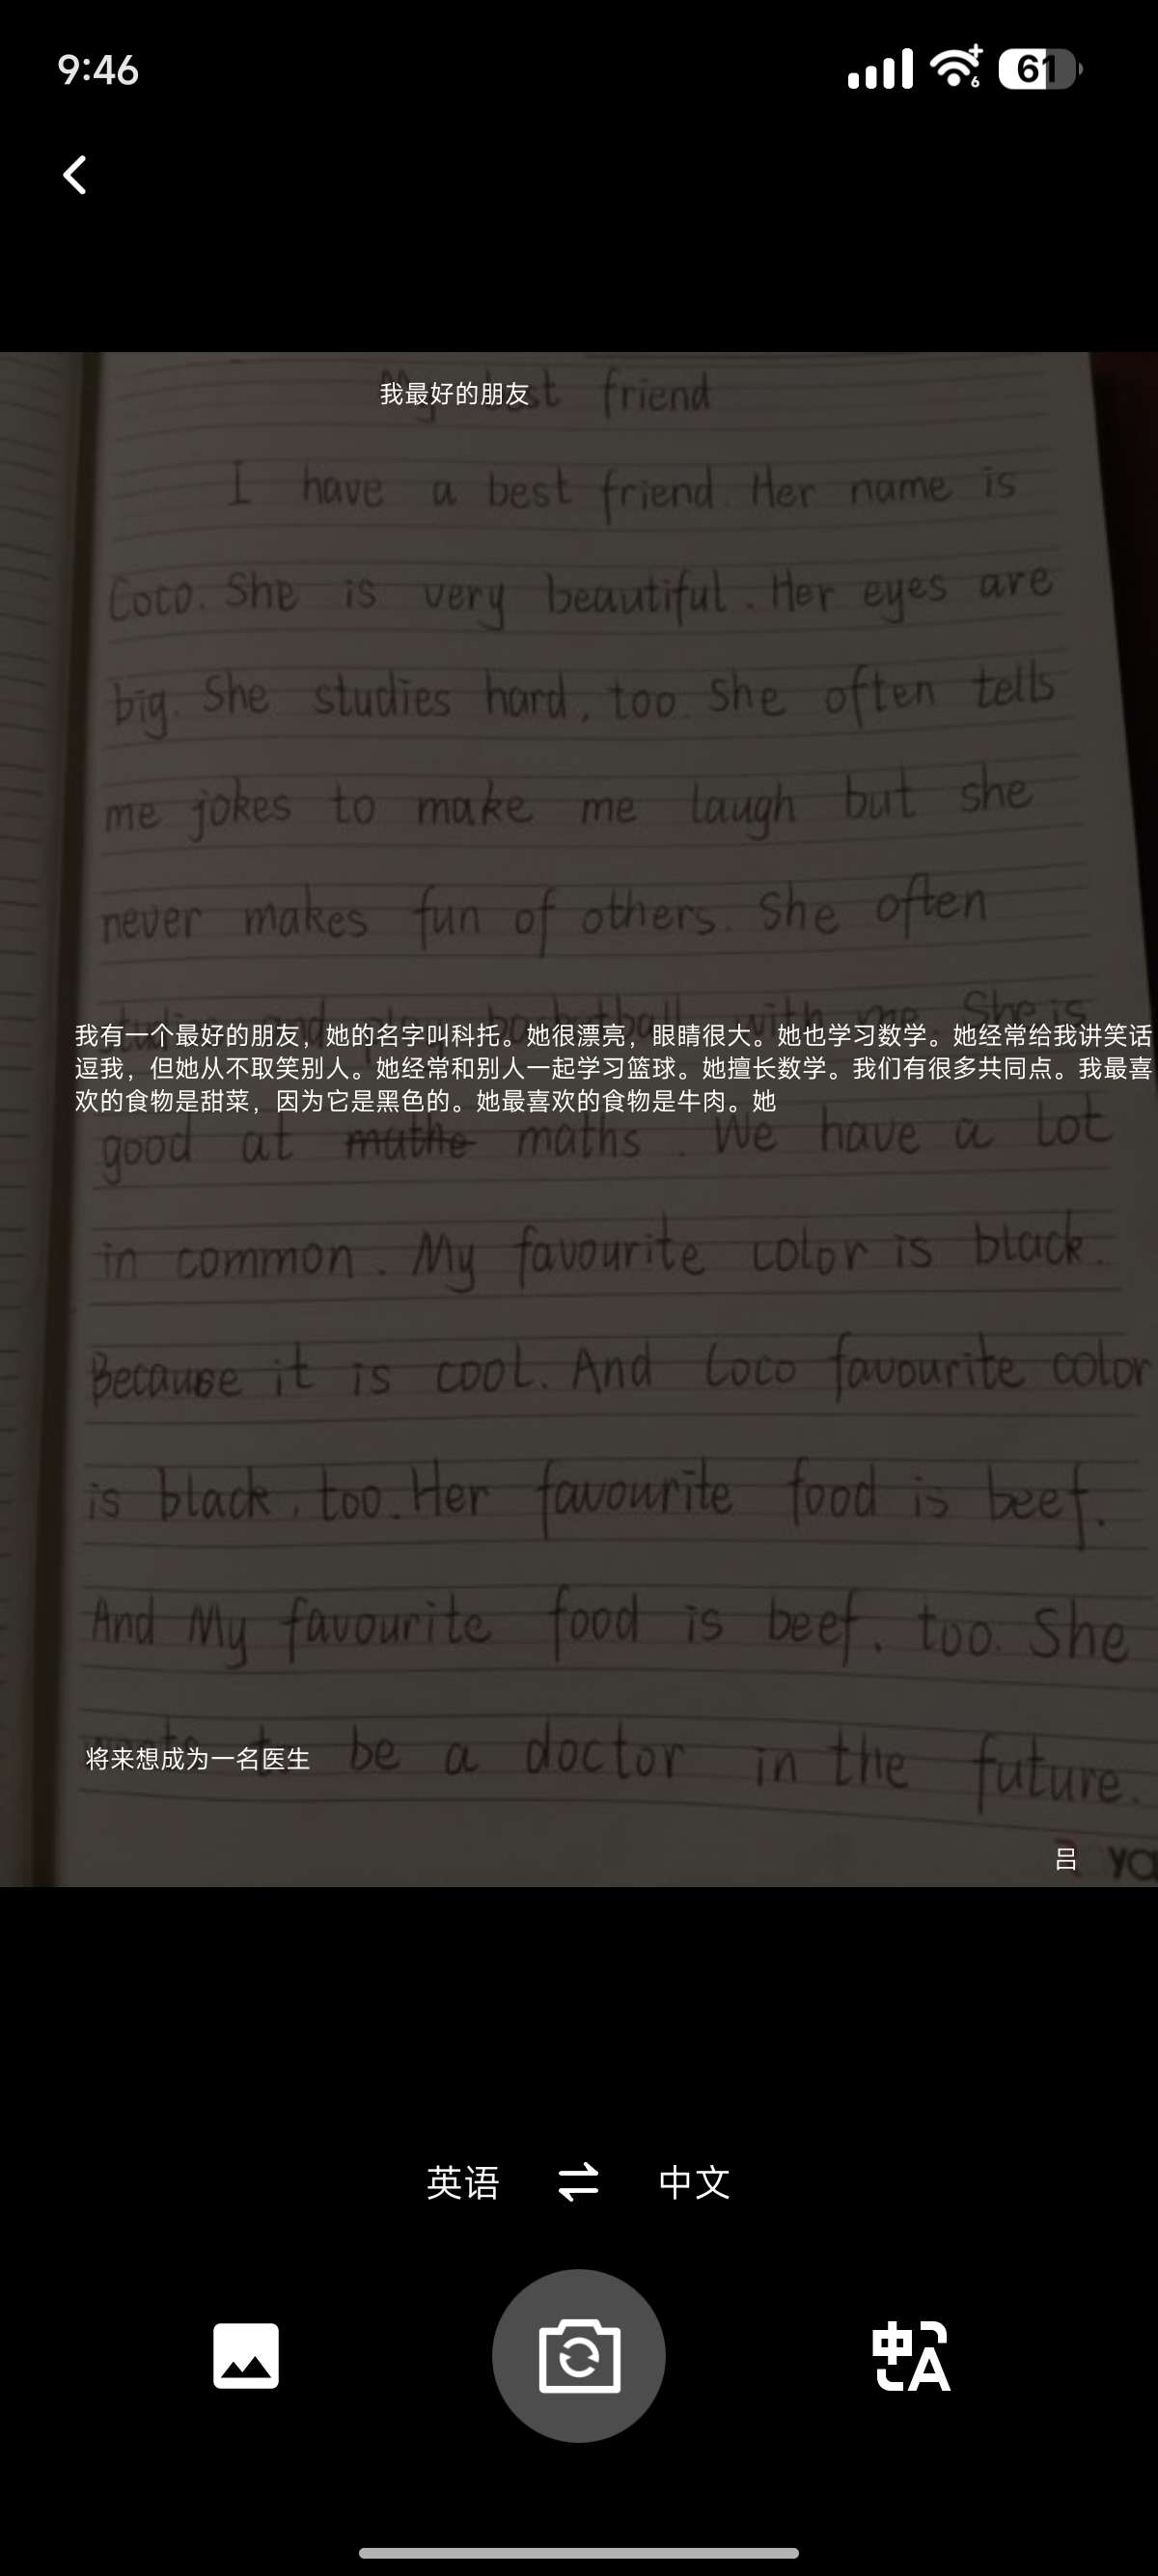 9:46
6
61
我最好的朋友
best friend
I have a best friend. Her name is
Coco. She is very beautiful. Her eyes are
big. She studies hard, too. She often tells
me jokes to make me laugh but she
never makes fun of others. She often
She is
我有一个最好的朋友，她的名字叫科托。她很漂亮，眼睛很大。她也学习数学。她经常给我讲笑话
逗我，但她从不取笑别人。她经常和别人一起学习篮球。她擅长数学。我们有很多共同点。我最喜
欢的食物是甜菜，因为它是黑色的。她最喜欢的食物是牛肉。她
good at mathe maths. We have a lot
in common. My favourite color is black.
Because it is cool. And Coco favourite color
is black, too. Her favourite food is beef.
And My favourite food is beef, too. She
将来想成为一名医生
be a doctor in the future.
吕
英语 中文